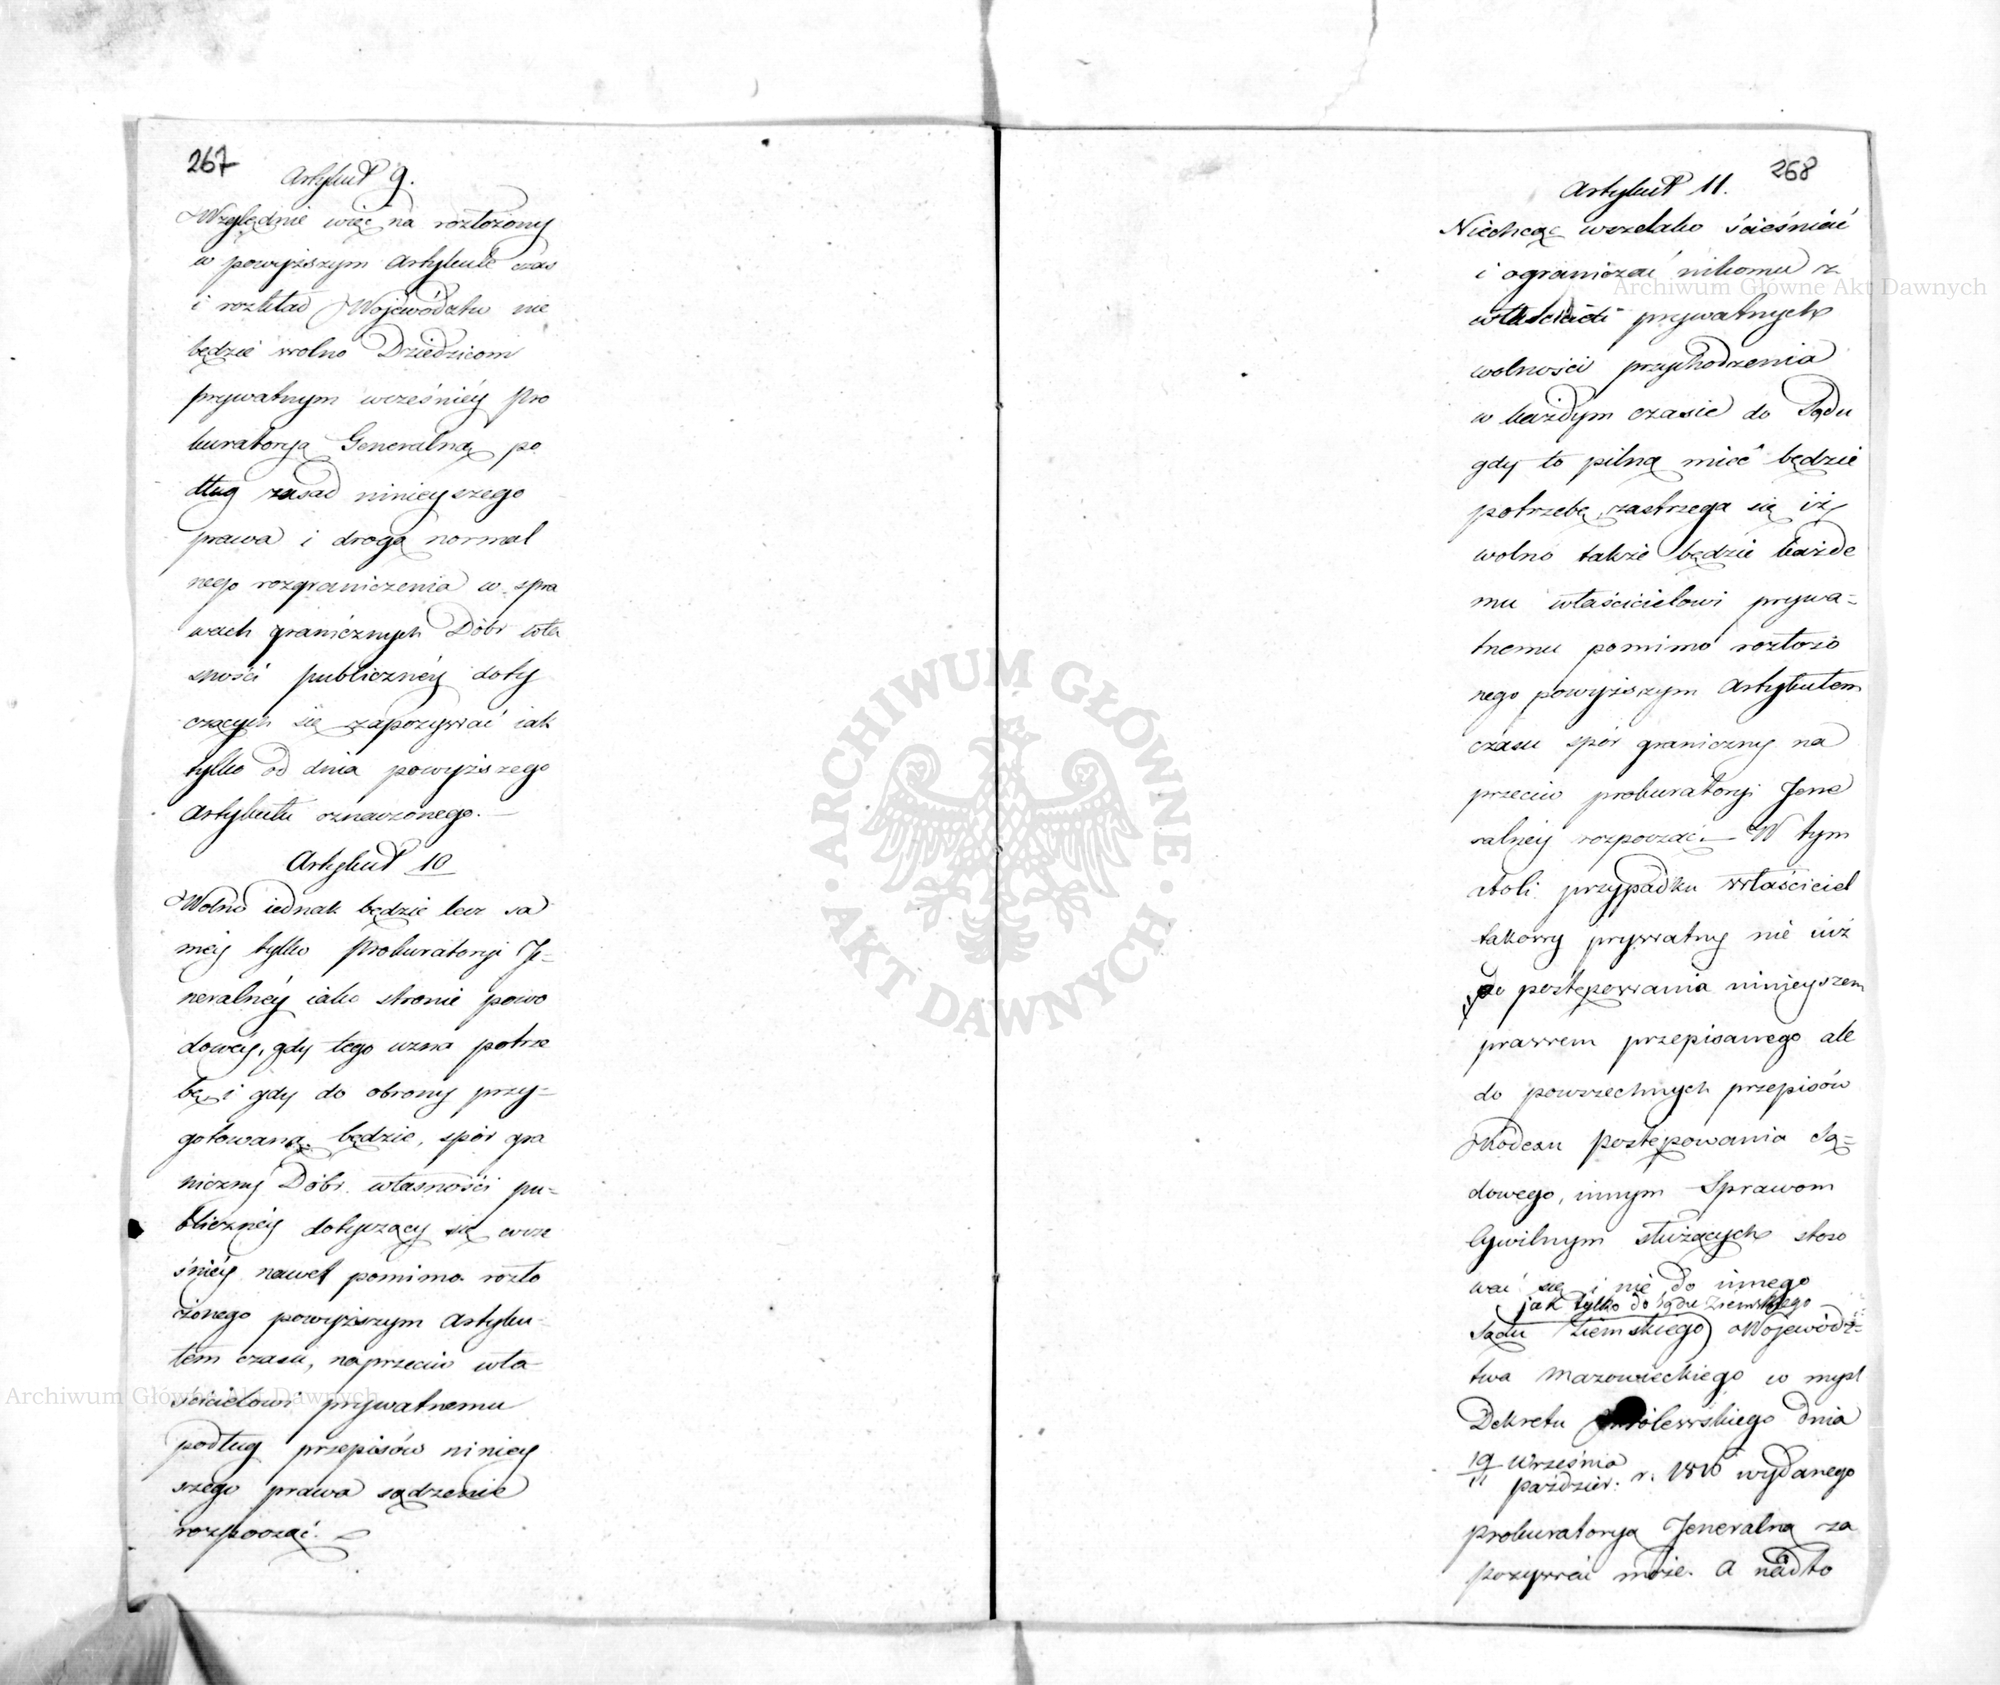 267
Artykuł 9.
Względnie więc na rozłożony
w powyższym Artykule czas
i rozkład Województw nie
będzie wolno Dziedzicom
prywatnym wcześniéy Pro
kuratoryą Generalną po
dług zasad ninieyszego
prawa i drogą normal
nego rozgraniczenia w spra
wach granicznych Dóbr wła
sności publicznéy doty
czących się zapozywać iak
tylko od dnia powyższego
Artykułu oznaczonego.
Artykuł 10
Wolno iednak będzie lecz sa
méy tylko Prokuratoryi Je=
neralnéy iako stronie powo
dowéy, gdy tego uzna potrze
bę i gdy do obrony przy=
gotowaną będzie, spór gra
niczny Dóbr własności pu=
bliczney dotyczący się wcze
śniéy nawet pomimo rozło
żonego powyższym Artyku=
łem czasu, naprzeciw wła=
ścicielowi prywatnemu
podług przepisów niniey
szego prawa sądzenie
rozpocząć.
268
Artykuł 11.
Niechcąc wszelako ścieśniać
i ograniczać nikomu z
właścicieli prywatnych
wolności przychodzenia
w każdym czasie do Sądu
gdy to pilną mieć będzie
potrzebę, zastrzega się iż
wolno także będzie każde
mu właścicielowi prywa=
tnemu pomimo rozłożo
nego powyższym Artykułem
czasu spór graniczny na
przeciw prokuratoryi Jene
ralnéy rozpocząć. W tym
atoli przypadku właściciel
takowy prywatny nie iuż
do postępowania ninieyszem
prawem przepisanego ale
do powszechnych przepisów
Kodexu postępowania Są=
dowego, innym Sprawom
Cywilnym służących stoso
wać się i nie do innego
jak tylko do Sądu Ziemskiego
Sądu Ziemskiego Wojewódz=
twa Mazowieckiego w myśl
Dekretu Królewskiego dnia
19 Września
11 Paździer. r. 1816 wydanego
prokuratoryą Jeneralną za
pozywać może. A nadto
ARCHIWUM GŁÓWNE AKT DAWNYCH
Archiwum Główne Akt Dawnych
Archiwum Główne Akt Dawnych